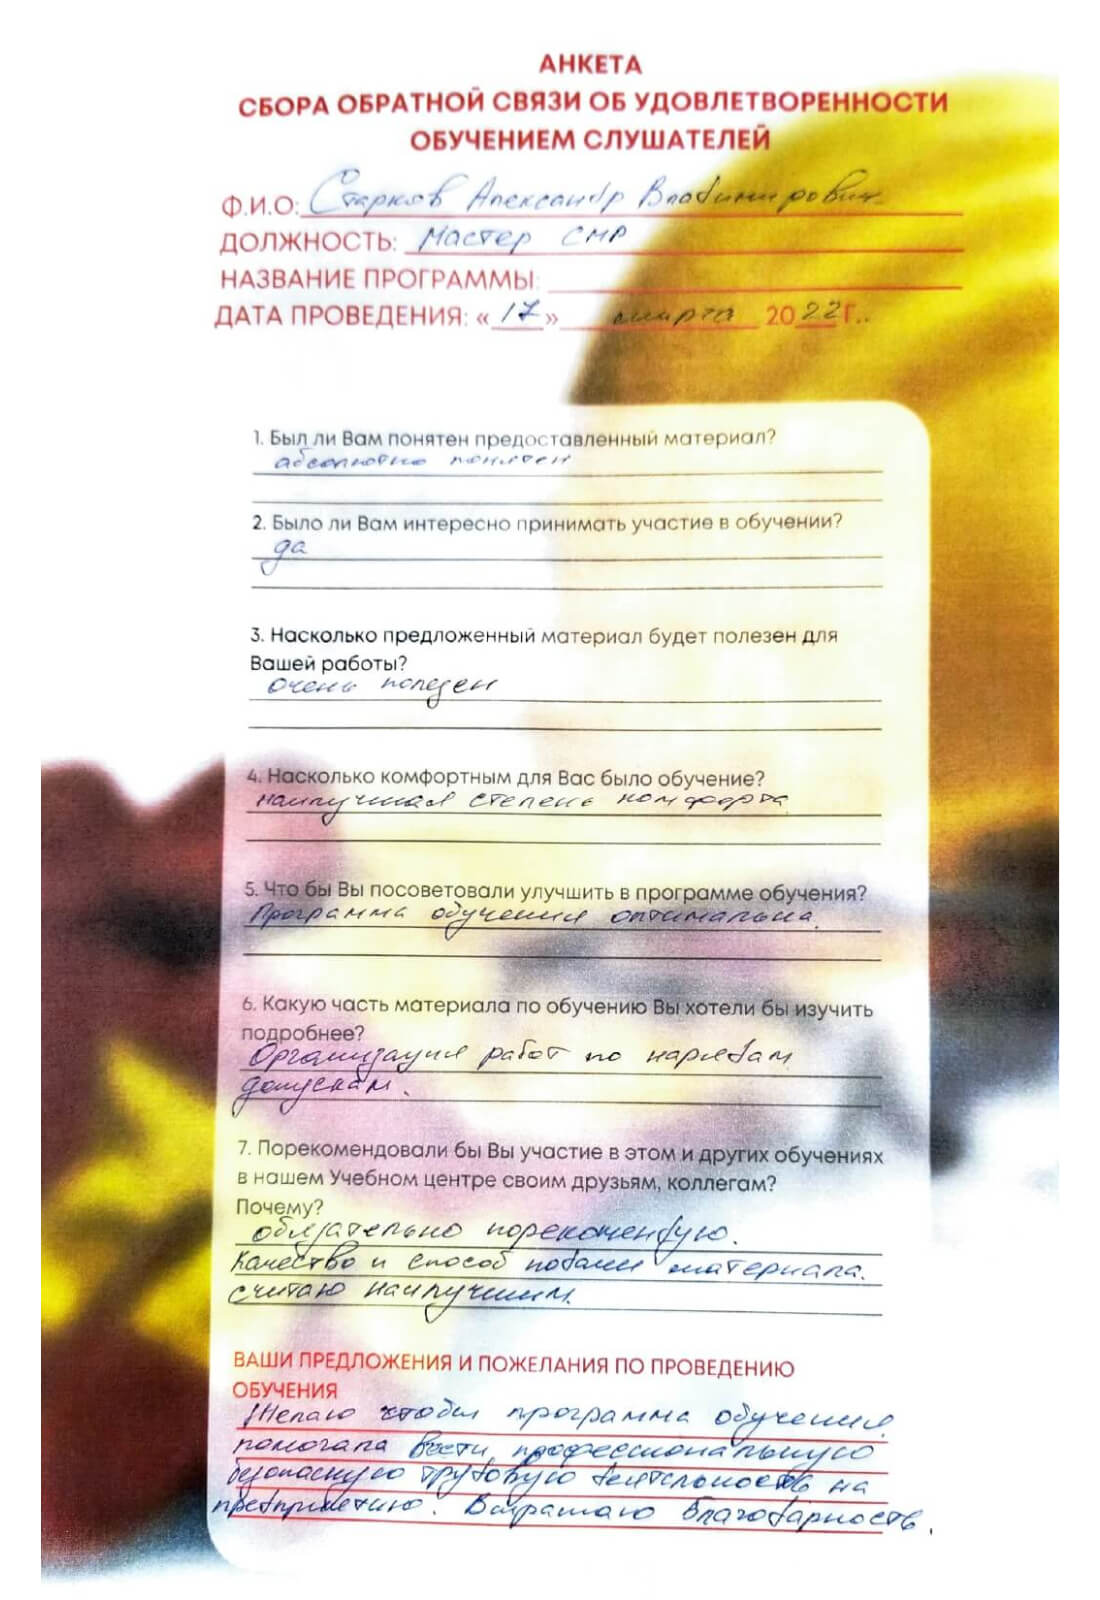 АНКЕТА
СБОРА ОБРАТНОЙ СВЯЗИ ОБ УДОВЛЕТВОРЕННОСТИ
ОБУЧЕНИЕМ СЛУШАТЕЛЕЙ
Ф.И.О: Старков Александр Владимирович
ДОЛЖНОСТЬ: Мастер СМР
НАЗВАНИЕ ПРОГРАММЫ:
ДАТА ПРОВЕДЕНИЯ: «17» марта 2022 Г..
1. Был ли Вам понятен предоставленный материал?
абсолютно понятен
2. Было ли Вам интересно принимать участие в обучении?
да
3. Насколько предложенный материал будет полезен для
Вашей работы?
очень полезен
4. Насколько комфортным для Вас было обучение?
наилучшая степень комфорта
5. Что бы Вы посоветовали улучшить в программе обучения?
Программа обучения оптимальна.
6. Какую часть материала по обучению Вы хотели бы изучить
подробнее?
Организация работ по нарядам
допускам.
7. Порекомендовали бы Вы участие в этом и других обучениях
в нашем Учебном центре своим друзьям, коллегам?
Почему?
обязательно порекомендую.
Качество и способ подачи материала
считаю наилучшим.
ВАШИ ПРЕДЛОЖЕНИЯ И ПОЖЕЛАНИЯ ПО ПРОВЕДЕНИЮ
ОБУЧЕНИЯ
Желаю чтобы программа обучения
помогала вести профессиональную
безопасную трудовую деятельность на
предприятию. Выражаю благодарность.